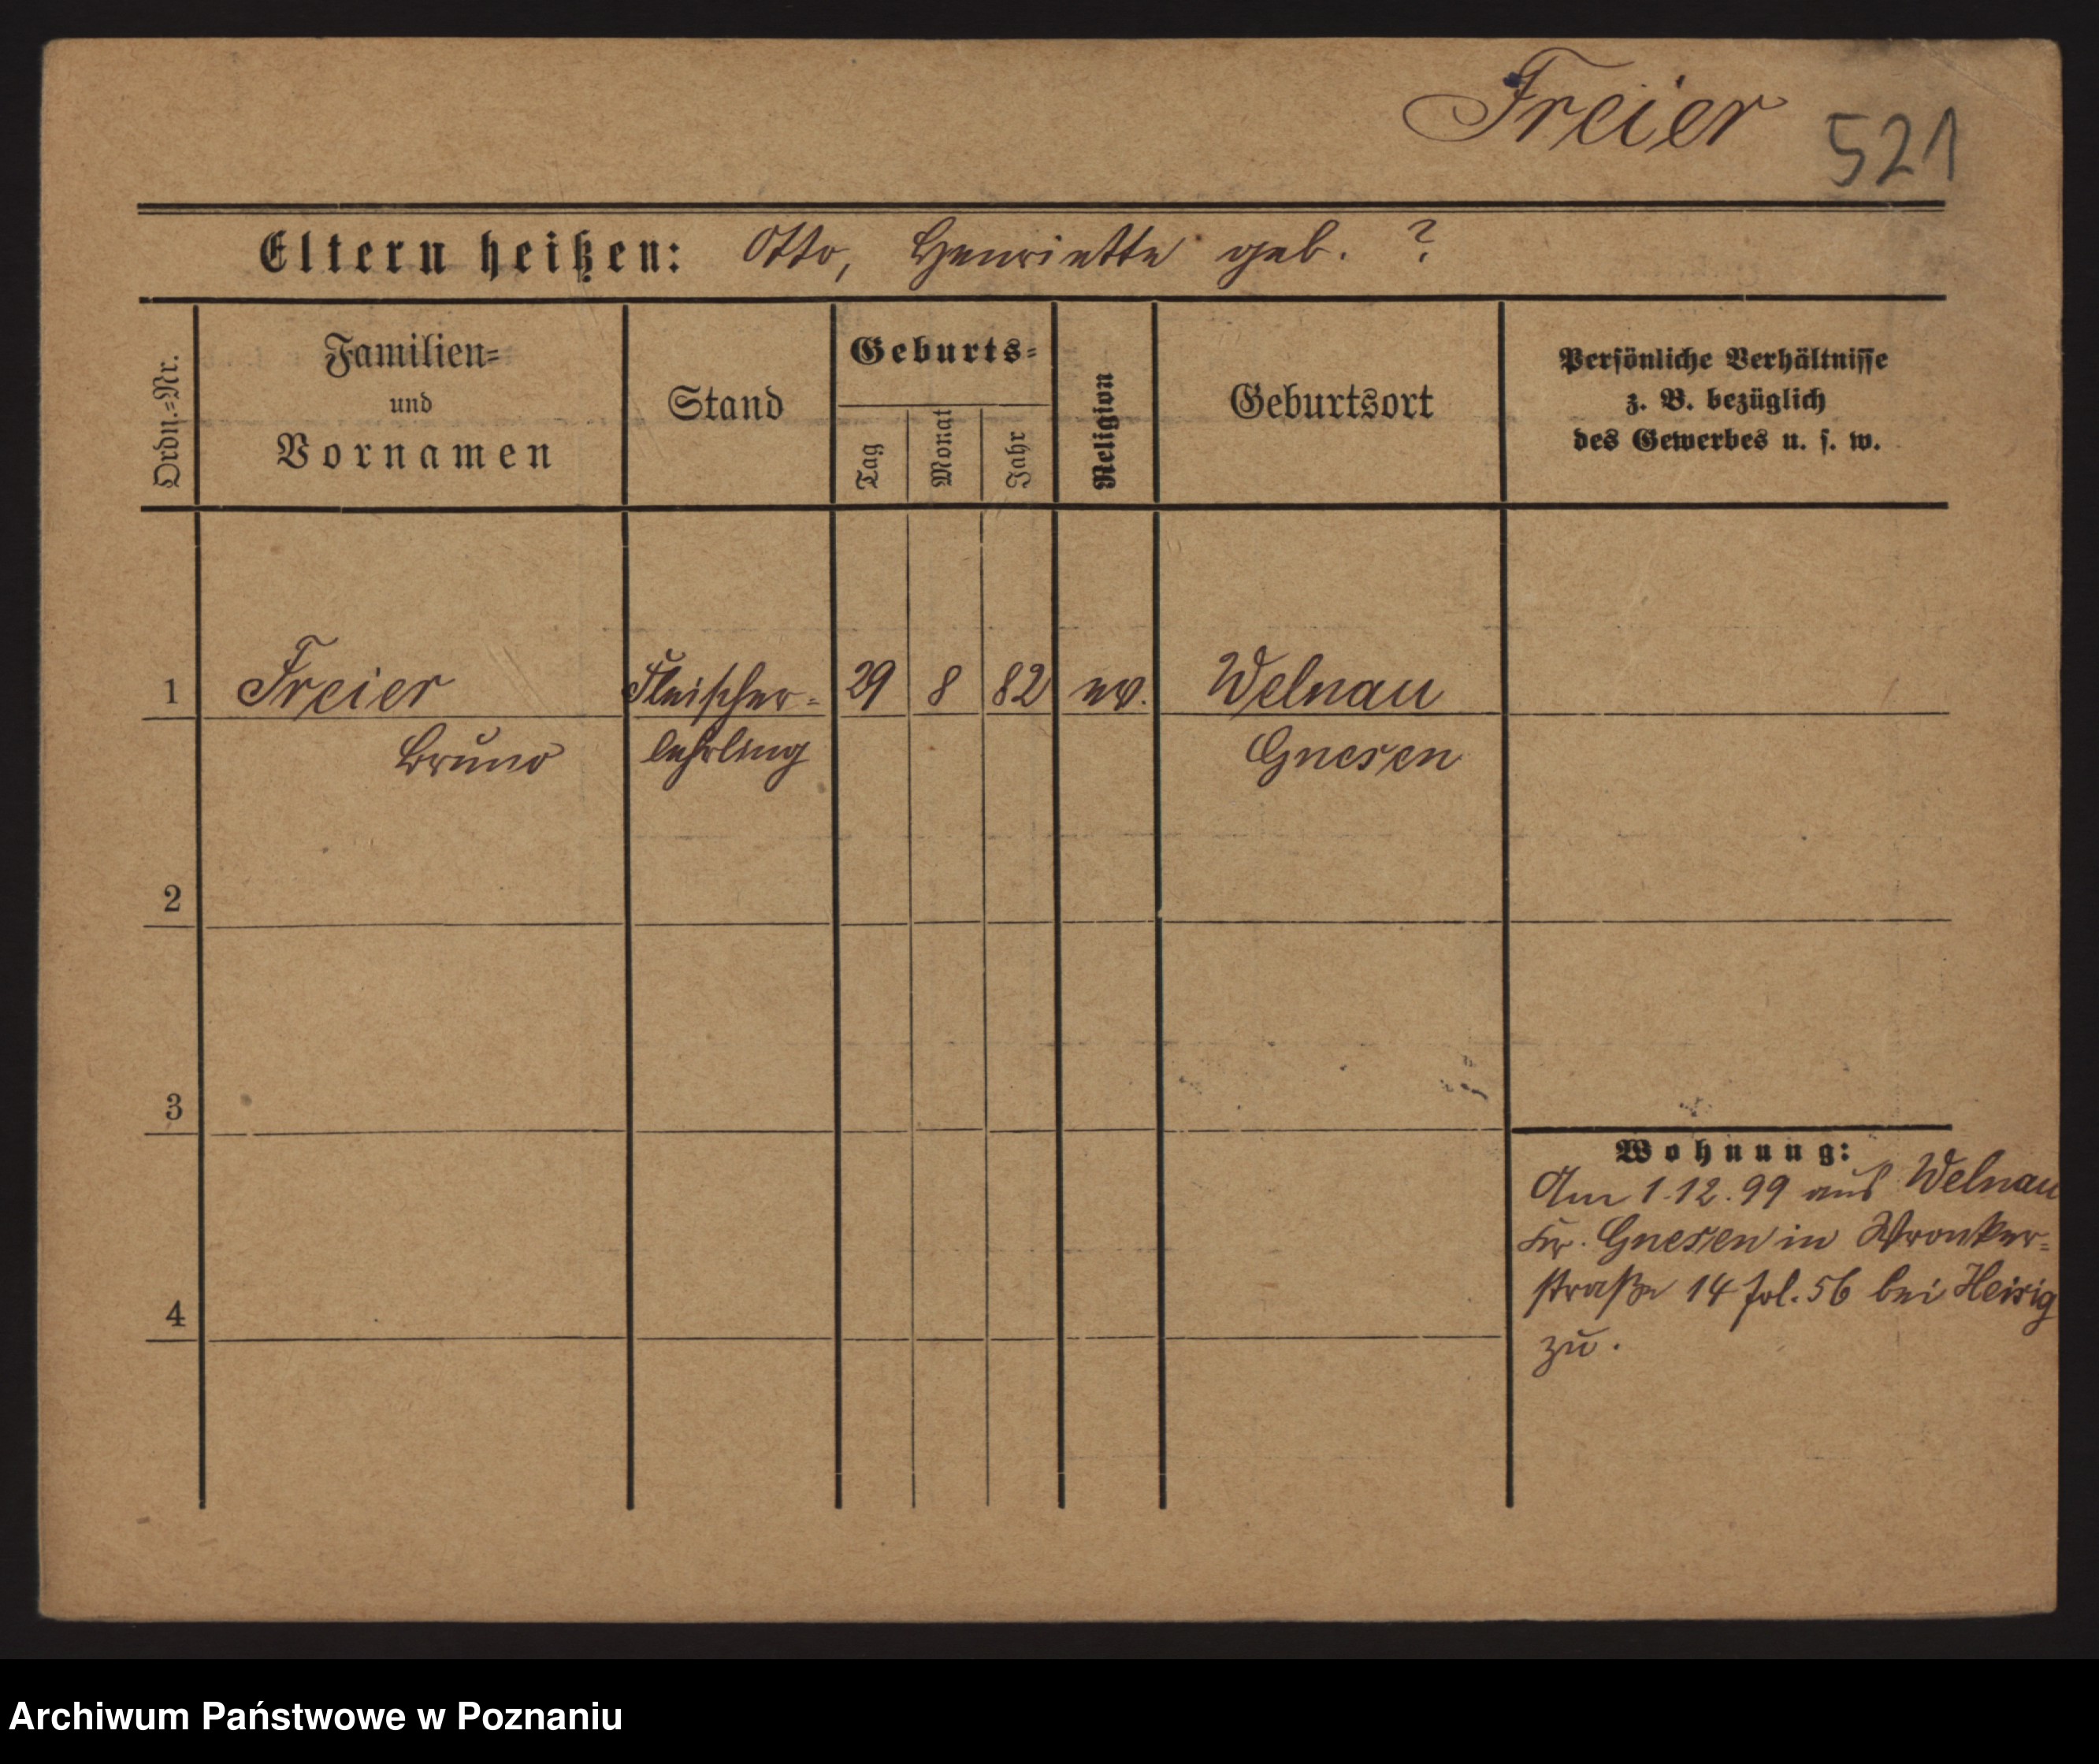 Freier
521
Eltern heißen: Otto, Henriette geb. ?
Ordn.=Nr.
Familien=
und
Vornamen
Stand
Geburts=
Tag
Monat
Jahr
Religion
Geburtsort
Persönliche Verhältnisse
z. B. bezüglich
des Gewerbes u. s. w.
1 Freier Fleischer= 29 8 82 ev. Welnau
Bruno lehrling Gnesen
2
3
Wohnung:
Am 1.12.99 aus Welnau
Kr. Gnesen in Wronker=
straße 14 fol. 56 bei Heisig
zu.
4
Archiwum Państwowe w Poznaniu